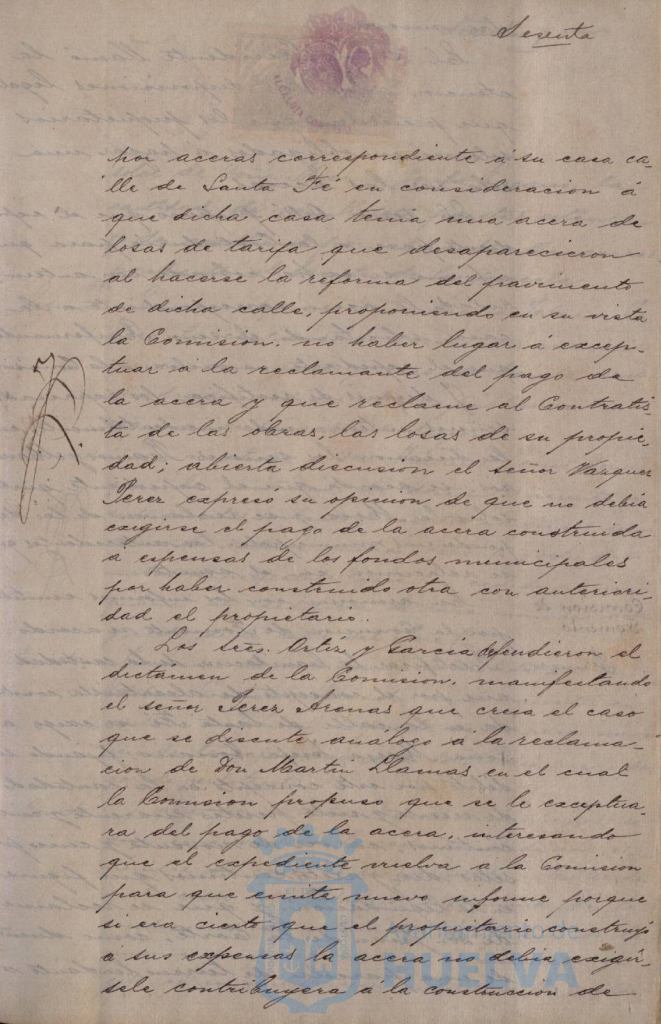 Sesenta
ALCALDIA
por aceras correspondiente á su casa ca-
lle de Santa Fé en consideracion á
que dicha casa tenia una acera de
losas de tarifa que desaparecieron
al hacerse la reforma del pavimento
de dicha calle, proponiendo en su vista
la Comision, no haber lugar á excep-
tuar á la reclamante del pago de
la acera y que reclame al Contratis-
ta de las obras, las losas de su propie-
dad; abierta discusion el señor Vazquez
Perez expresó su opinion de que no debia
exigirse el pago de la acera construida
á espensas de los fondos municipales
por haber construido otra con anteriori-
dad el propietario.
Los Sres. Ortiz y Garcia defendieron el
dictámen de la Comision, manifestando
el señor Perez Arenas que creia el caso
que se discute análogo á la reclama-
cion de Don Martin Llamas en el cual
la Comision propuso que se le exceptua-
ra del pago de la acera, interesando
que el expediente vuelva a la Comision
para que emita nuevo informe porque
si era cierto que el propietario construyó
á sus expensas la acera no debia exigir-
sele contribuyera á la construccion de
HUELVA